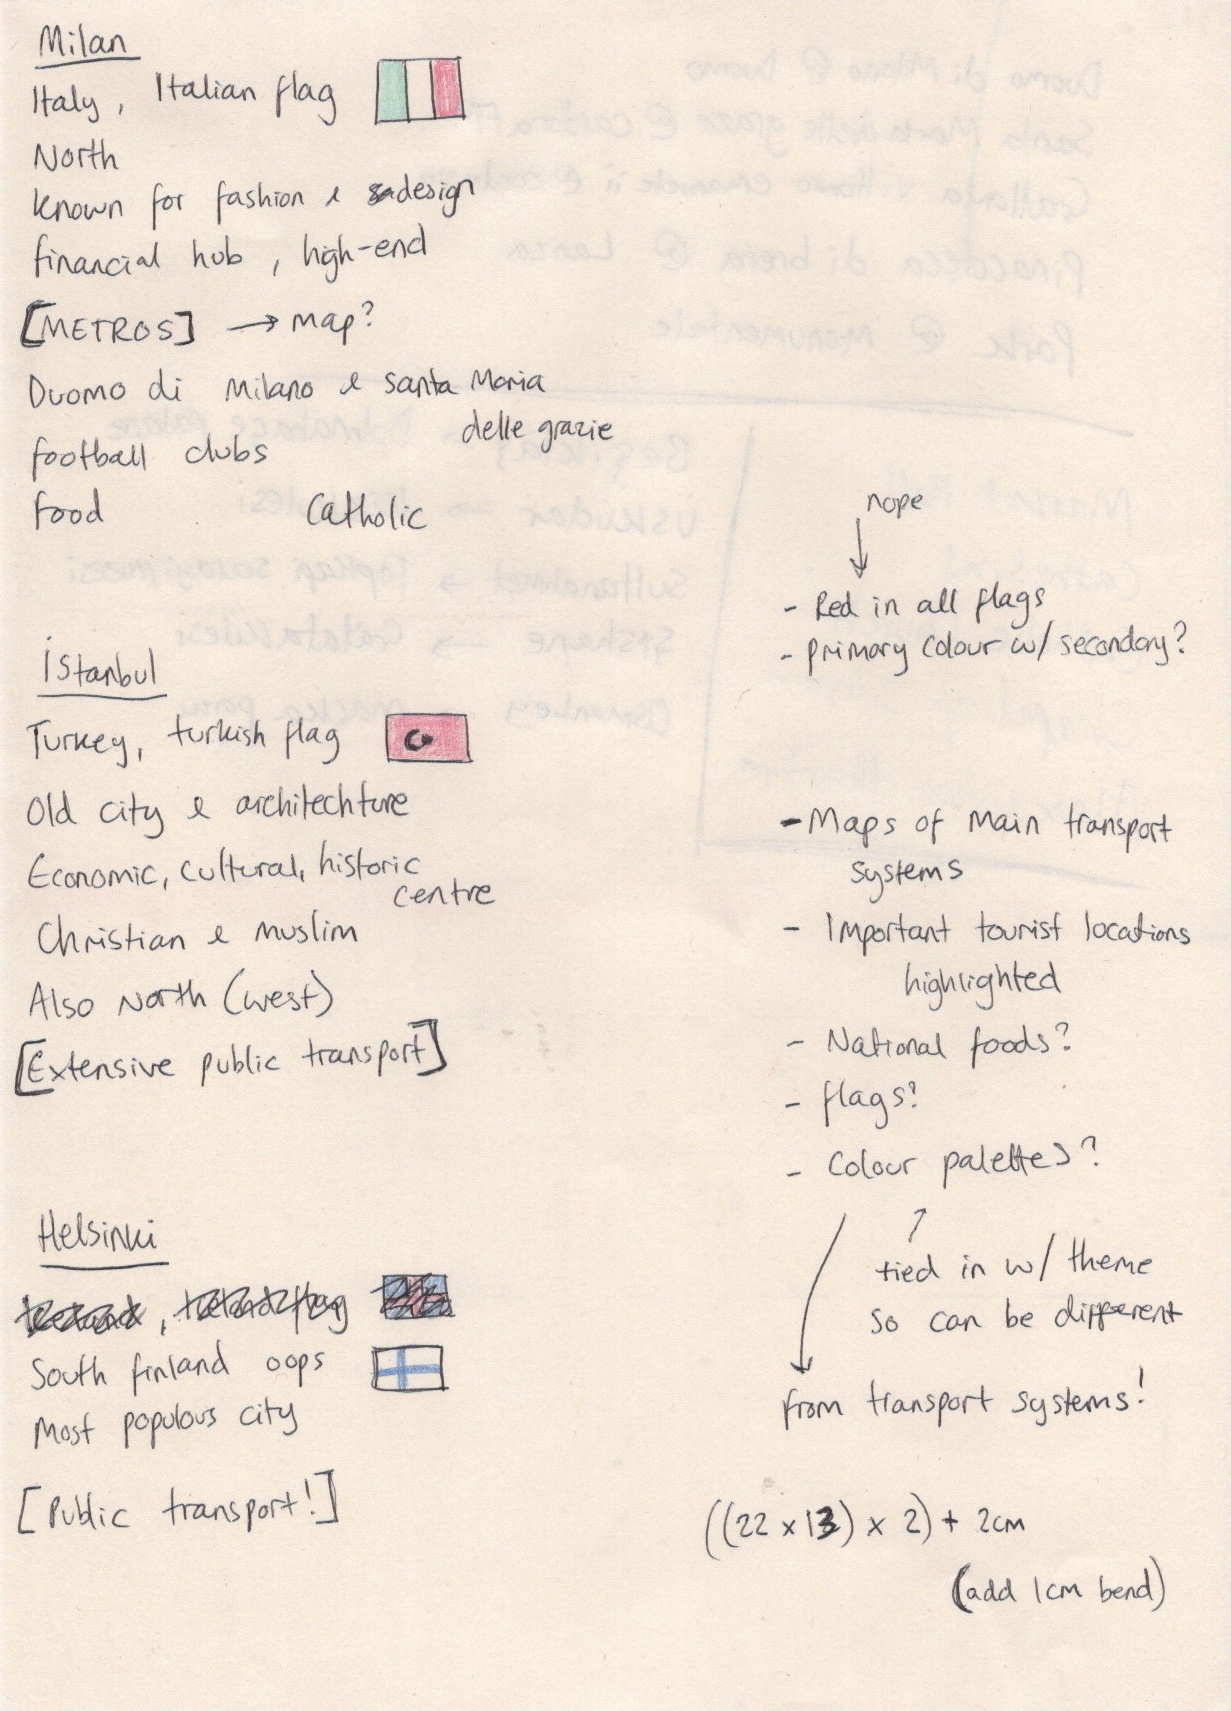 Milan
Italy, Italian flag
North
known for fashion & design
financial hub, high-end
[METROS] → map?
Duomo di Milano & santa Maria
delle grazie
football clubs
food Catholic
istanbul
Turkey, turkish flag
Old city & architechture
Economic, cultural, historic
centre
Christian & muslim
Also North (west)
[Extensive public transport]
Helsinki
South finland oops
Most populous city
[Public transport!]
nope
- Red in all flags
- primary colour w/ secondary?
- Maps of main transport
systems
- Important tourist locations
highlighted
- National foods?
- flags?
- Colour palettes?
tied in w/ theme
so can be different
from transport systems!
((22 x 13) x 2) + 2cm
(add 1cm bend)